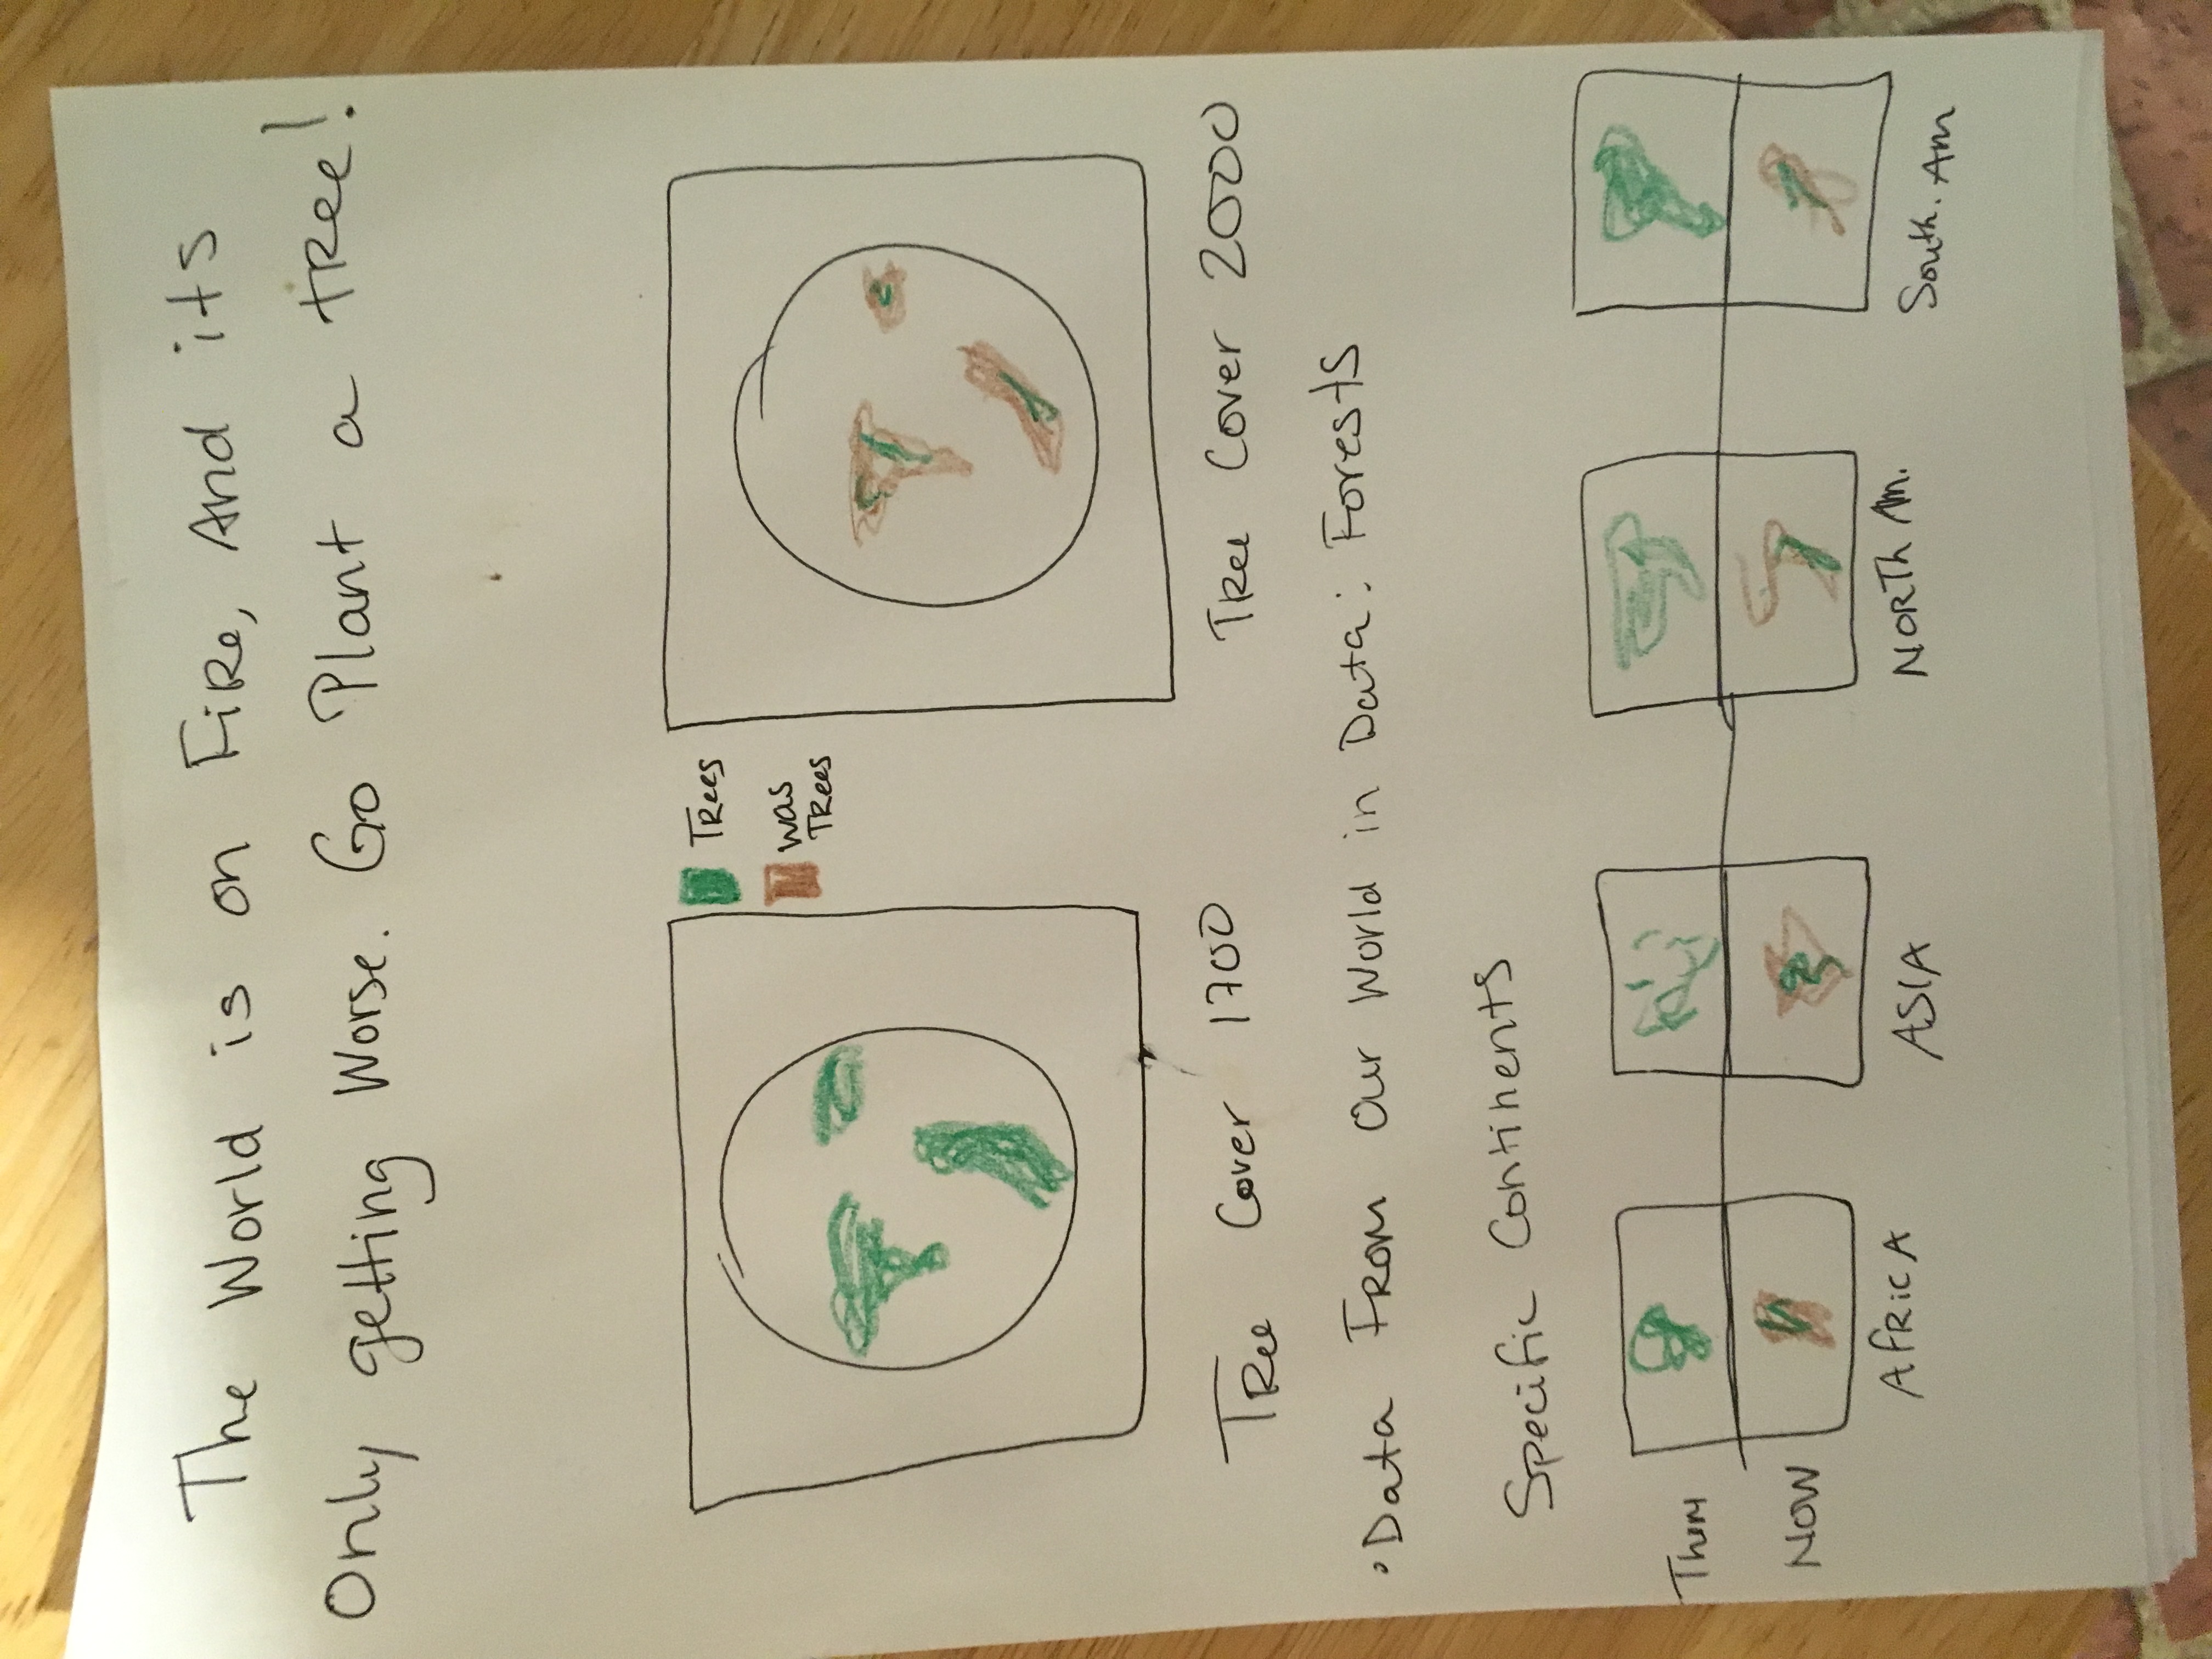 The World is on Fire, And its
Only getting Worse. Go Plant a tree!
Trees
was
Trees
Tree Cover 1700
Tree Cover 2000
•Data From Our World in Data: Forests
Specific Continents
Then
Now
AfRicA
ASIA
NORTh Am.
South. Am